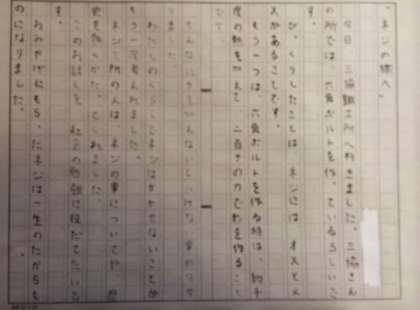 「ネジの旅へ」
今日、三協鐵工所へ行きました。三協さん
の所では、六角ボルトを作っているらしいで
す。
びっくりしたことは、ネジには、オスとメ
スがあることです。
もう一つは、六角ボルトを作る時は、約千
度の熱を加えて、二百tの力で物を作ること
です。
そんなに力を加えないといけない
ました。
わたしのくらしにネジはかかせないことが
もう一度考えれました。
ネジ工所の人は、ネジの事についてや、歴
史を教えて、くれました。
このお話しを、社会の勉強に役だてたいで
す。
おみやげにもらったネジは一生のたからも
のになりました。